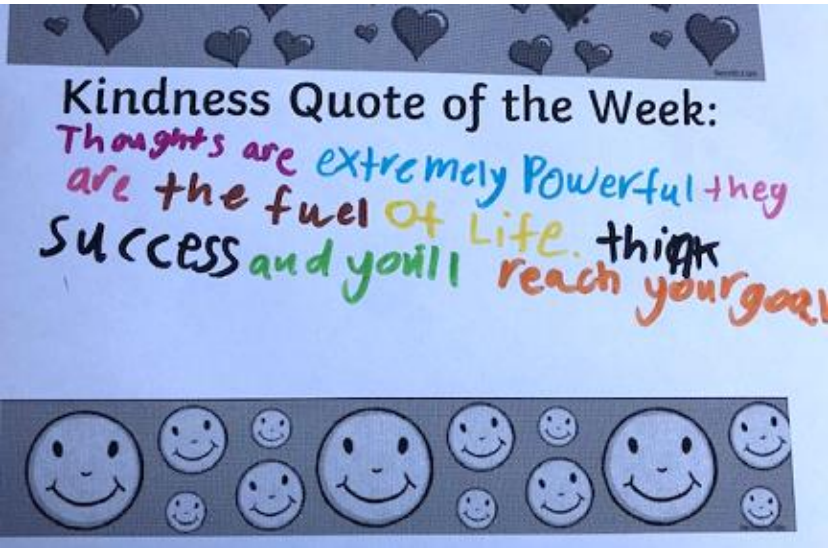 Kindness Quote of the Week:
Thoughts are extremely Powerful they
are the fuel Of Life. think
success and you'll reach your goal